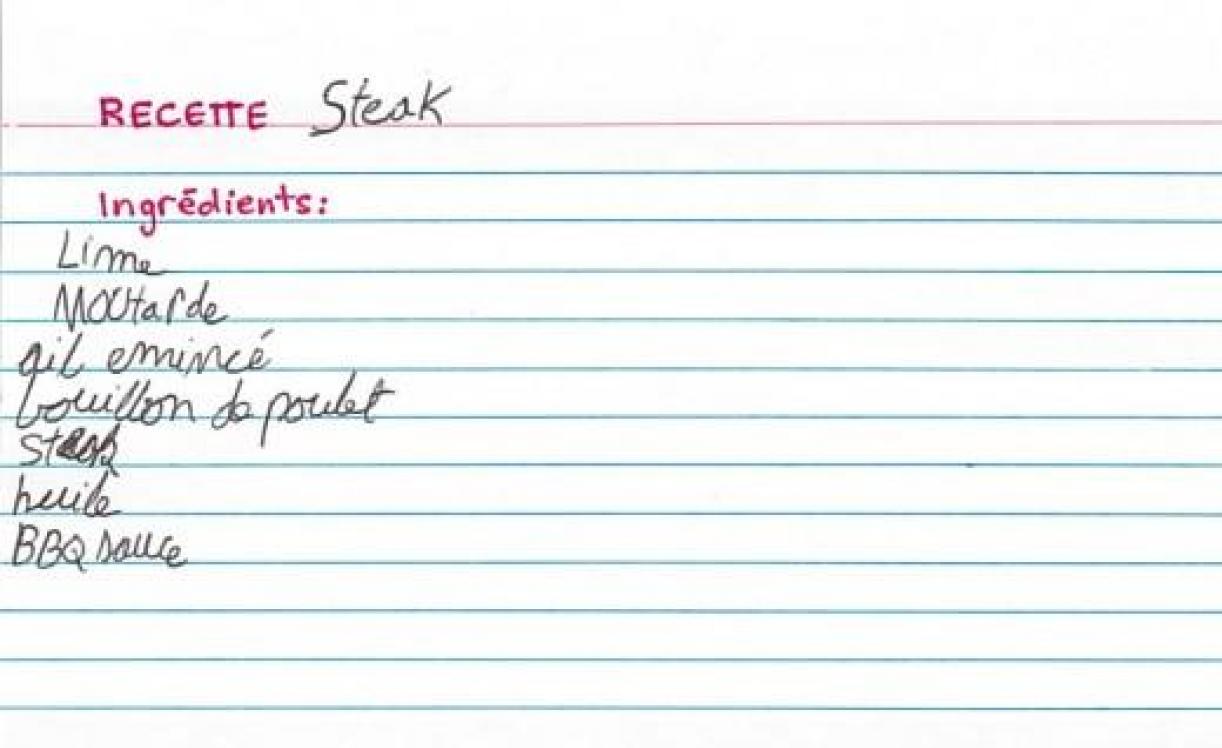 RECETTE Steak
Ingrédients:
Lime
Moutarde
ail emincé
bouillon de poulet
steak
huile
BBQ sauce